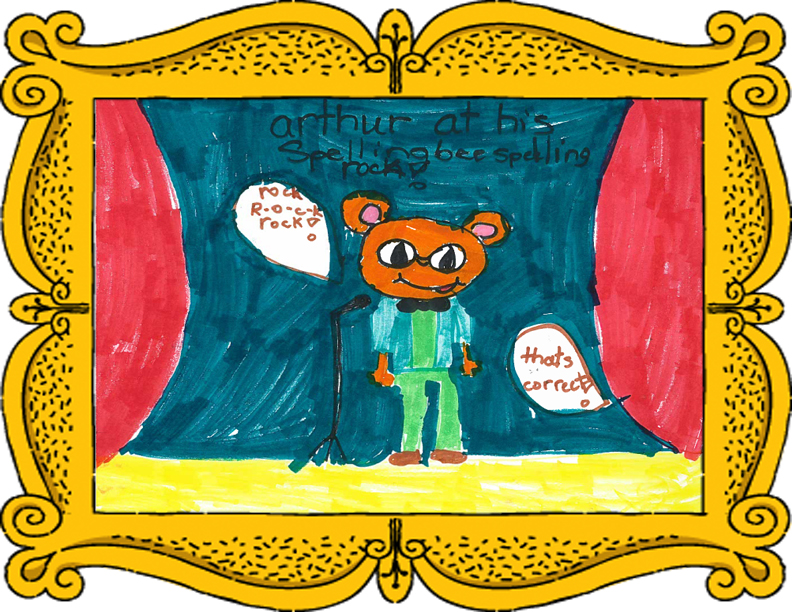 arthur at his
Spelling bee spelling
rock!
rock
R-o-c-k
rock!
thats
correct!